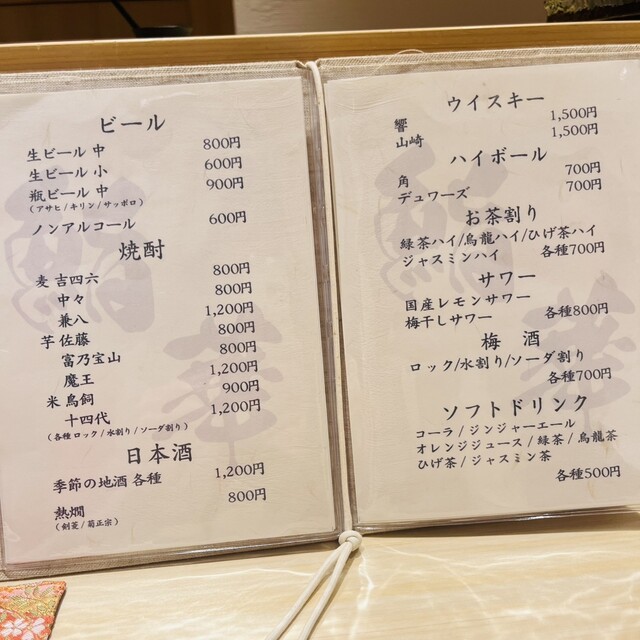 ビール
生ビール 中 800円
生ビール 小 600円
瓶ビール 中 900円
(アサヒ/キリン/サッポロ)
ノンアルコール 600円
焼酎
麦 吉四六 800円
中々 800円
兼八 1,200円
芋 佐藤 800円
富乃宝山 800円
魔王 1,200円
米 鳥飼 900円
十四代 1,200円
(各種ロック/水割り/ソーダ割り)
日本酒
季節の地酒 各種 1,200円
熱燗 800円
(剣菱/菊正宗)
ウイスキー
響 1,500円
山崎 1,500円
ハイボール
角 700円
デュワーズ 700円
お茶割り
緑茶ハイ/烏龍ハイ/ひげ茶ハイ
ジャスミンハイ 各種700円
サワー
国産レモンサワー
梅干しサワー 各種800円
梅酒
ロック/水割り/ソーダ割り
各種700円
ソフトドリンク
コーラ/ジンジャーエール
オレンジジュース/緑茶/烏龍茶
ひげ茶/ジャスミン茶
各種500円